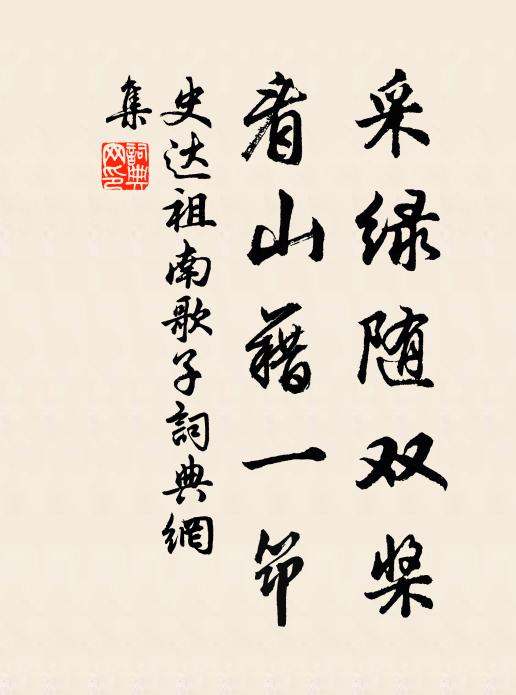 采绿随双桨
看山藉一筇
史达祖南歌子詞典網
集
詞典
网印